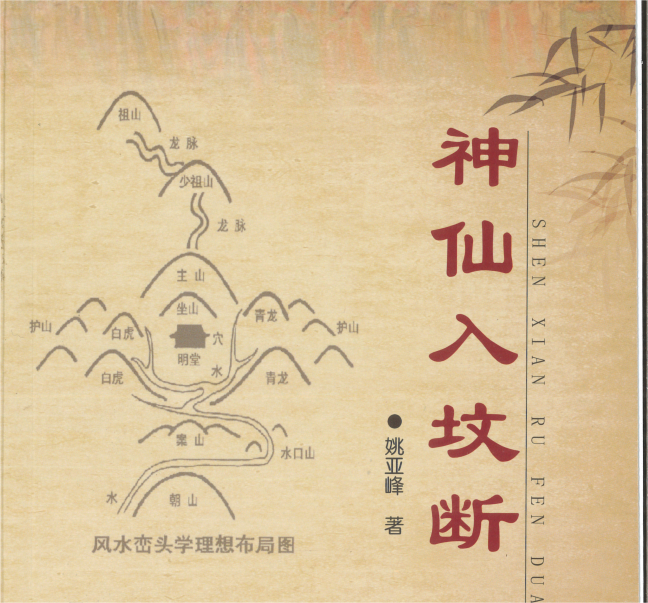 神仙入坟断
SHEN XIAN RU FEN DUA
●姚亚峰 著
祖山
龙脉
少祖山
龙脉
主山
坐山
护山
白虎
青龙
护山
穴
明堂
水
白虎
青龙
案山
水口山
水
朝山
风水峦头学理想布局图